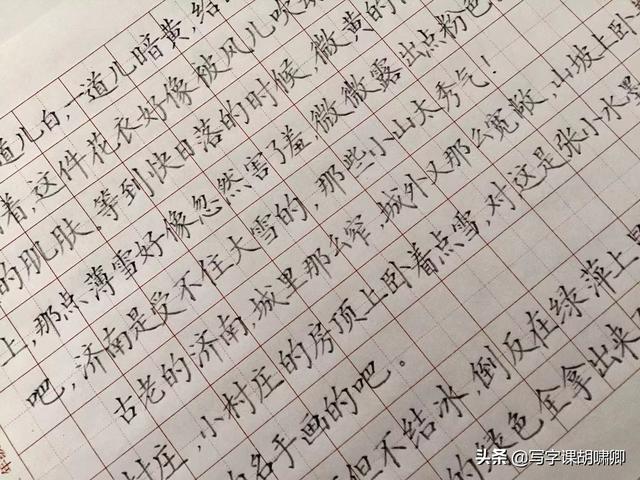 道儿白,一道儿暗黄,给
着,这件花衣好像被风儿吹动
的肌肤。等到快日落的时候,微黄的
上,那点薄雪好像忽然害了羞,微微露出点粉色
吧,济南是受不住大雪的,那些小山太秀气!
古老的济南,城里那么窄,城外又那么宽敞,山坡上卧
村庄,小村庄的房顶上卧着点雪,对这是张小水墨
名手画的吧。
但不结冰,倒反在绿萍上
的绿色全拿出来
头条 @写字课胡啸卿